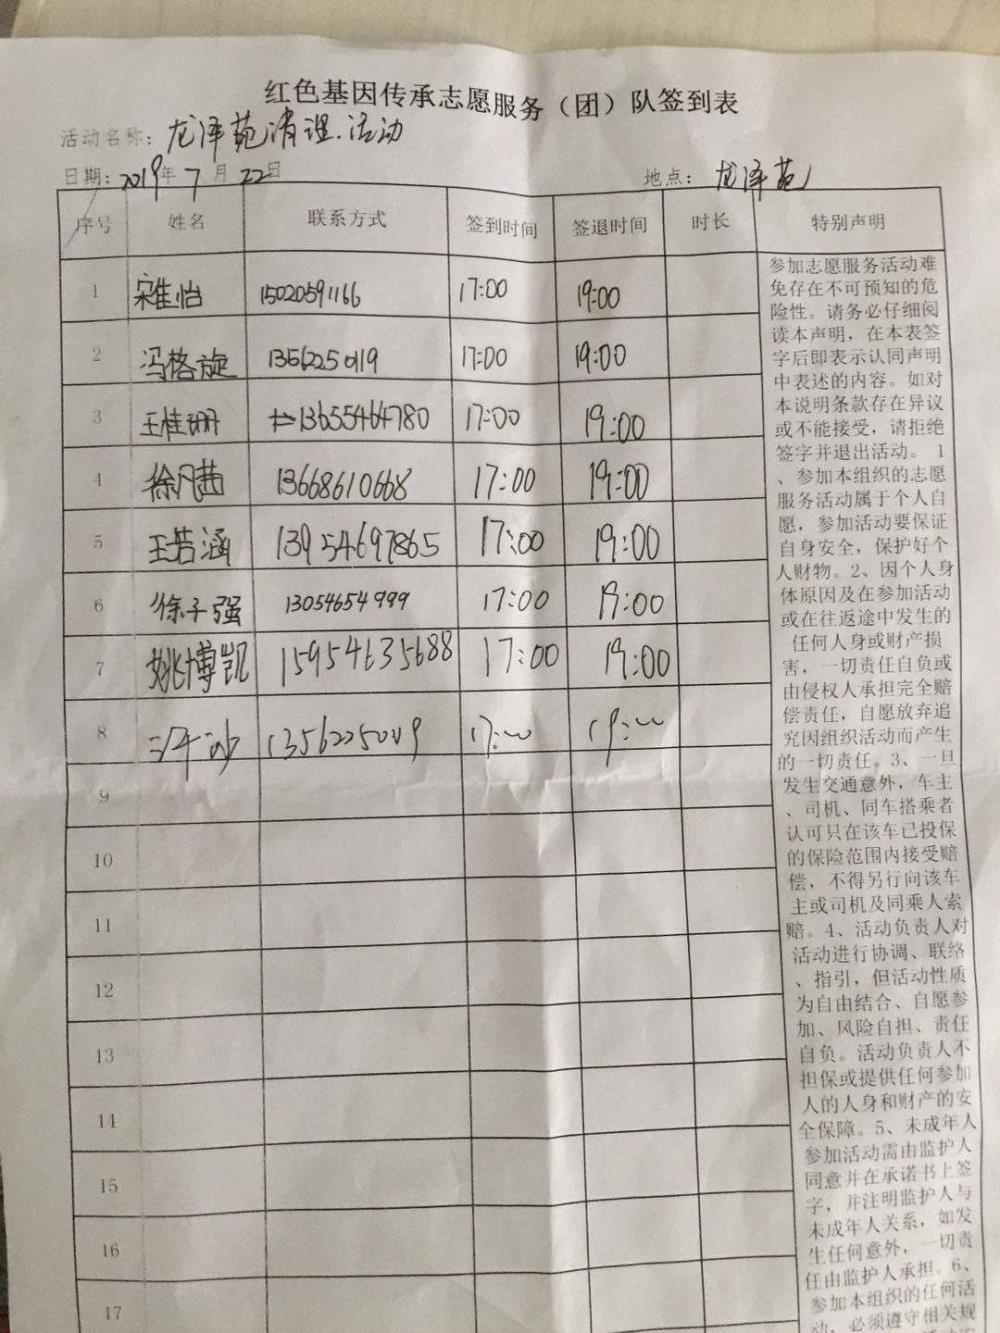 红色基因传承志愿服务（团）队签到表
活动名称：龙泽苑清理.活动
日期：2019年7月22日 地点：龙泽苑
序号 姓名 联系方式 签到时间 签退时间 时长 特别声明
1 宋佳怡 15020591166 17:00 19:00
2 冯格旋 13562250119 17:00 19:00
3 王桂珊 13655464780 17:00 19:00
4 徐凡茜 13668610668 17:00 19:00
5 王若涵 13954697865 17:00 19:00
6 徐子强 13054654999 17:00 19:00
7 姚博凯 15954635688 17:00 19:00
8 17:00 19:00
9
10
11
12
13
14
15
16
17
参加志愿服务活动难
免存在不可预知的危
险性。请务必仔细阅
读本声明，在本表签
字后即表示认同声明
中表述的内容。如对
本说明条款存在异议
或不能接受，请拒绝
签字并退出活动。1
、参加本组织的志愿
服务活动属于个人自
愿，参加活动要保证
自身安全，保护好个
人财物。2、因个人身
体原因及在参加活动
或在往返途中发生的
任何人身或财产损
害，一切责任自负或
由侵权人承担完全赔
偿责任，自愿放弃追
究因组织活动而产生
的一切责任。3、一旦
发生交通意外，车主
、司机、同车搭乘者
认可只在该车已投保
的保险范围内接受赔
偿，不得另行向该车
主或司机及同乘人索
赔。4、活动负责人对
活动进行协调、联络
、指引，但活动性质
为自由结合、自愿参
加、风险自担、责任
自负。活动负责人不
担保或提供任何参加
人的人身和财产的安
全保障。5、未成年人
参加活动需由监护人
同意并在承诺书上签
字，并注明监护人与
未成年人关系，如发
生任何意外，一切责
任由监护人承担。6、
参加本组织的任何活
动，必须遵守相关规